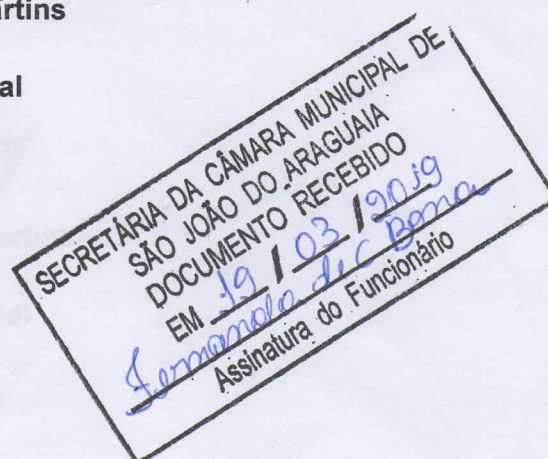 artins
al
SECRETÁRIA DA CÂMARA MUNICIPAL DE
SÃO JOÃO DO ARAGUAIA
DOCUMENTO RECEBIDO
EM 19 / 03 / 2019
Fernanda de C Bena
Assinatura do Funcionário